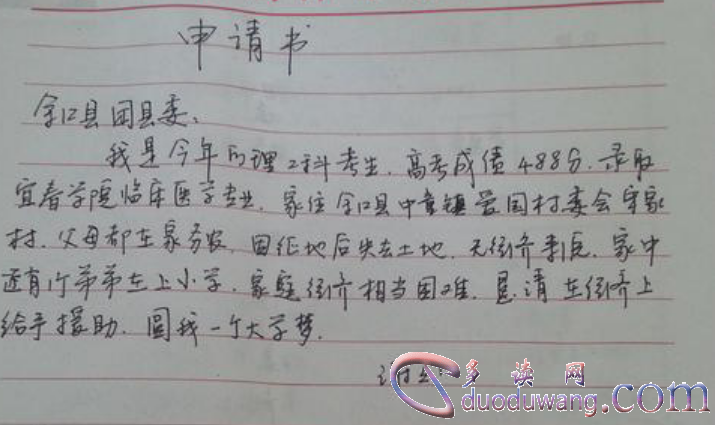 申请书
余江县团县委:
我是今年的理工科考生,高考成绩488分,录取
宜春学院临床医学专业,家住余江县中童镇 村委会 家
村,父母都在家务农,因征地后失去土地,无经济来源,家中
还有个弟弟在上小学,家庭经济相当困难,恳请在经济上
给予援助,圆我一个大学梦.
多读网
duoduwang.com